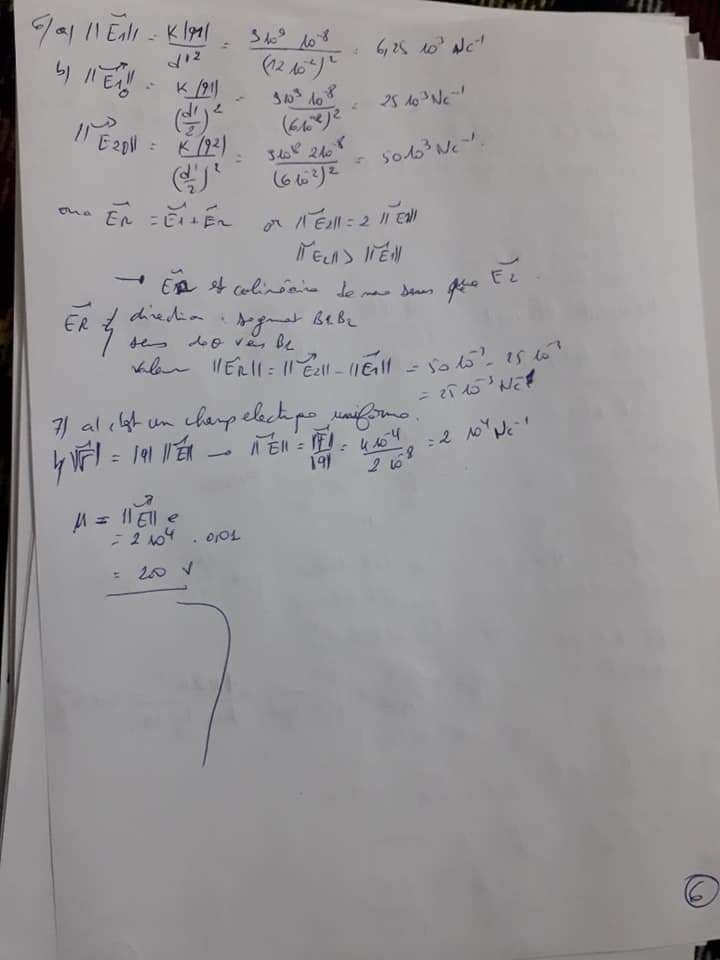 6/ a) ||E⃗1|| = K|q1| / d'² = 9 10⁹ 10⁻⁸ / (12 10⁻²)² = 6,25 10³ NC⁻¹
b) ||E⃗1o|| = K|q1| / (d'/2)² = 9 10⁹ 10⁻⁸ / (6 10⁻²)² = 25 10³ NC⁻¹
||E⃗2o|| = K|q2| / (d'/2)² = 9 10⁹ 2 10⁻⁸ / (6 10⁻²)² = 50 10³ NC⁻¹
on a E⃗R = E⃗1 + E⃗2 or ||E⃗2|| = 2 ||E⃗1||
||E⃗2|| > ||E⃗1||
→ E⃗R est colinéaire de même sens que E⃗2.
E⃗R { direction : segment B1B2
sens de O vers B2
valeur ||E⃗R|| = ||E⃗2|| - ||E⃗1|| = 50 10⁻³ - 25 10⁻³
= 25 10⁻³ NC⁻¹
7/ a/ c'est un champ électrique uniforme.
b/ ||F⃗|| = |q| ||E⃗|| → ||E⃗|| = ||F⃗|| / |q| = 4 10⁻⁴ / 2 10⁻⁸ = 2 10⁴ NC⁻¹
U = ||E⃗|| e
= 2 10⁴ . 0,01
= 200 V
6